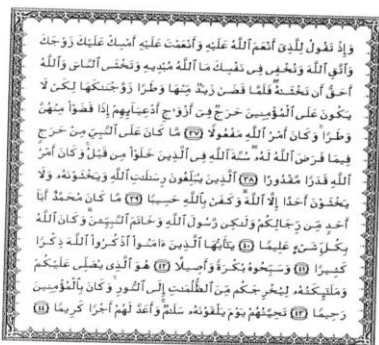 وَإِذْ تَقُولُ لِلَّذِىٓ أَنْعَمَ ٱللَّهُ عَلَيْهِ وَأَنْعَمْتَ عَلَيْهِ أَمْسِكْ عَلَيْكَ زَوْجَكَ
وَٱتَّقِ ٱللَّهَ وَتُخْفِى فِى نَفْسِكَ مَا ٱللَّهُ مُبْدِيهِ وَتَخْشَى ٱلنَّاسَ وَٱللَّهُ
أَحَقُّ أَن تَخْشَىٰهُ فَلَمَّا قَضَىٰ زَيْدٌ مِّنْهَا وَطَرًا زَوَّجْنَٰكَهَا لِكَىْ لَا
يَكُونَ عَلَى ٱلْمُؤْمِنِينَ حَرَجٌ فِىٓ أَزْوَٰجِ أَدْعِيَآئِهِمْ إِذَا قَضَوْا۟ مِنْهُنَّ
وَطَرًا وَكَانَ أَمْرُ ٱللَّهِ مَفْعُولًا ٣٧ مَّا كَانَ عَلَى ٱلنَّبِىِّ مِنْ حَرَجٍ
فِيمَا فَرَضَ ٱللَّهُ لَهُۥ سُنَّةَ ٱللَّهِ فِى ٱلَّذِينَ خَلَوْا۟ مِن قَبْلُ وَكَانَ أَمْرُ
ٱللَّهِ قَدَرًا مَّقْدُورًا ٣٨ ٱلَّذِينَ يُبَلِّغُونَ رِسَٰلَٰتِ ٱللَّهِ وَيَخْشَوْنَهُۥ وَلَا
يَخْشَوْنَ أَحَدًا إِلَّا ٱللَّهَ وَكَفَىٰ بِٱللَّهِ حَسِيبًا ٣٩ مَّا كَانَ مُحَمَّدٌ أَبَآ
أَحَدٍ مِّن رِّجَالِكُمْ وَلَٰكِن رَّسُولَ ٱللَّهِ وَخَاتَمَ ٱلنَّبِيِّۦنَ وَكَانَ ٱللَّهُ
بِكُلِّ شَىْءٍ عَلِيمًا ٤٠ يَٰٓأَيُّهَا ٱلَّذِينَ ءَامَنُوا۟ ٱذْكُرُوا۟ ٱللَّهَ ذِكْرًا
كَثِيرًا ٤١ وَسَبِّحُوهُ بُكْرَةً وَأَصِيلًا ٤٢ هُوَ ٱلَّذِى يُصَلِّى عَلَيْكُمْ
وَمَلَٰٓئِكَتُهُۥ لِيُخْرِجَكُم مِّنَ ٱلظُّلُمَٰتِ إِلَى ٱلنُّورِ وَكَانَ بِٱلْمُؤْمِنِينَ
رَحِيمًا ٤٣ تَحِيَّتُهُمْ يَوْمَ يَلْقَوْنَهُۥ سَلَٰمٌ وَأَعَدَّ لَهُمْ أَجْرًا كَرِيمًا ٤٤